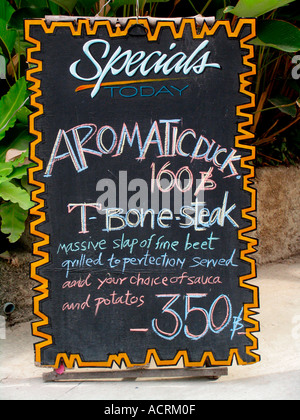 Specials
TODAY
AROMATIC DUCK
160 ฿
T-Bone-steak
massive slap of fine beet
grilled to pertection served
and your choice of sauca
and potatos
-350฿
alamy
Image ID: ACRM0F
www.alamy.com